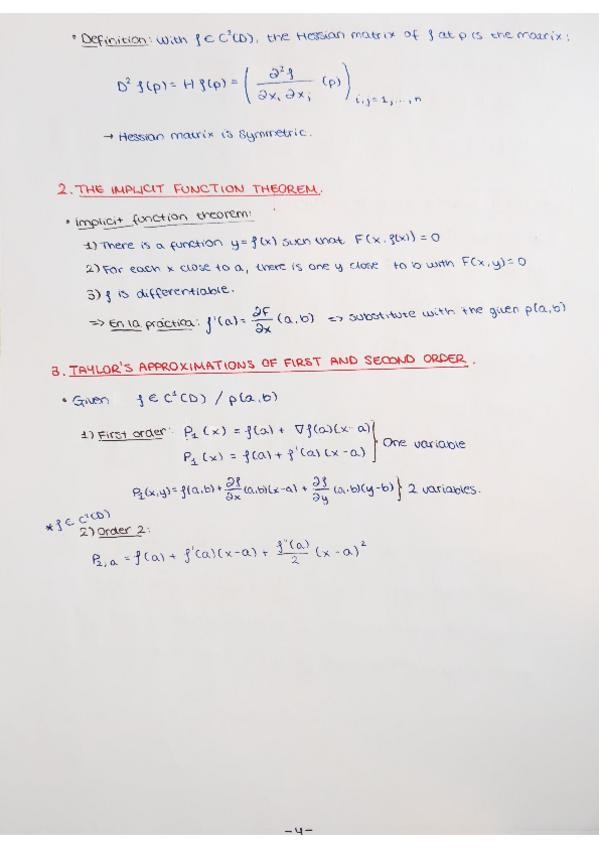 • Definition: With f ∈ C²(D), the Hessian matrix of f at p is the matrix:
D² f(p) = H f(p) = ( ∂²f / ∂xᵢ ∂xⱼ (p) ) i,j = 1, ..., n
→ Hessian matrix is symmetric.
2. THE IMPLICIT FUNCTION THEOREM.
• Implicit function theorem:
1) There is a function y = f(x) such that F(x, f(x)) = 0
2) For each x close to a, there is one y close to b with F(x,y) = 0
3) f is differentiable.
=> En la práctica: f'(a) = ∂F/∂x (a,b) => substitute with the given p(a,b)
3. TAYLOR'S APPROXIMATIONS OF FIRST AND SECOND ORDER.
• Given f ∈ C¹(D) / p(a,b)
1) First order: P₁(x) = f(a) + ∇f(a)(x-a)
P₁(x) = f(a) + f'(a)(x-a) } One variable
P₁(x,y) = f(a,b) + ∂f/∂x (a,b)(x-a) + ∂f/∂y (a,b)(y-b) } 2 variables.
* f ∈ C²(D)
2) Order 2:
P₂,a = f(a) + f'(a)(x-a) + f''(a)/2 (x-a)²
-4-